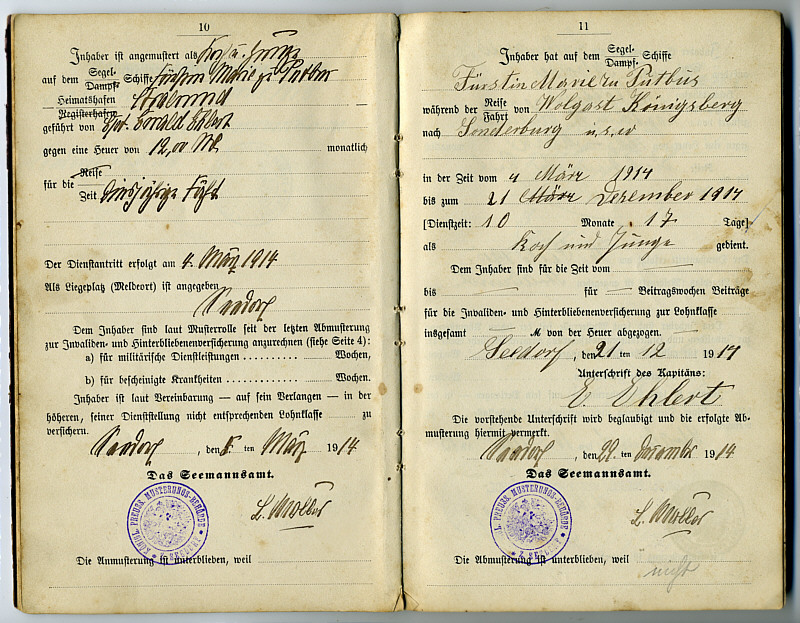 10
Inhaber ist angemustert als Koch u. Junge
auf dem Segel- Dampf- Schiffe Fürstin Marie zu Putbus
Heimatshafen Registerhafen Stralsund
geführt von Ehlert
gegen eine Heuer von 12,00 M. monatlich
für die Reise Zeit diesjährige Fahrt
Der Dienstantritt erfolgt am 4. März 1914
Als Liegeplatz (Meldeort) ist angegeben
Seedorf
Dem Inhaber sind laut Musterrolle seit der letzten Abmusterung
zur Invaliden- und Hinterbliebenenversicherung anzurechnen (siehe Seite 4):
a) für militärische Dienstleistungen .......... Wochen,
b) für bescheinigte Krankheiten .......... Wochen.
Inhaber ist laut Vereinbarung — auf sein Verlangen — in der
höheren, seiner Dienststellung nicht entsprechenden Lohnklasse zu
versichern.
Seedorf, den 5. ten März 1914
Das Seemannsamt.
KÖNIGL. PREUSS. MUSTERUNGS-BEHÖRDE
L. Möller
Die Anmusterung ist unterblieben, weil
11
Inhaber hat auf dem Segel- Dampf- Schiffe
Fürstin Marie zu Putbus
während der Reise Fahrt von Wolgast Königsberg
nach Sonderburg u.s.w
in der Zeit vom 4 März 1914
bis zum 21 März Dezember 1914
[Dienstzeit: 10 Monate 17 Tage]
als Koch und Junge gedient.
Dem Inhaber sind für die Zeit vom —
bis — für — Beitragswochen Beiträge
für die Invaliden- und Hinterbliebenenversicherung zur Lohnklasse
insgesamt — M von der Heuer abgezogen. —
Seedorf, den 21 ten 12 1914
Unterschrift des Kapitäns:
E. Ehlert
Die vorstehende Unterschrift wird beglaubigt und die erfolgte Ab-
musterung hiermit vermerkt.
Seedorf, den 22. ten Dezember 1914
Das Seemannsamt.
PREUSS. MUSTERUNGS-BEHÖRDE
L. Möller
Die Abmusterung ist unterblieben, weil
nicht